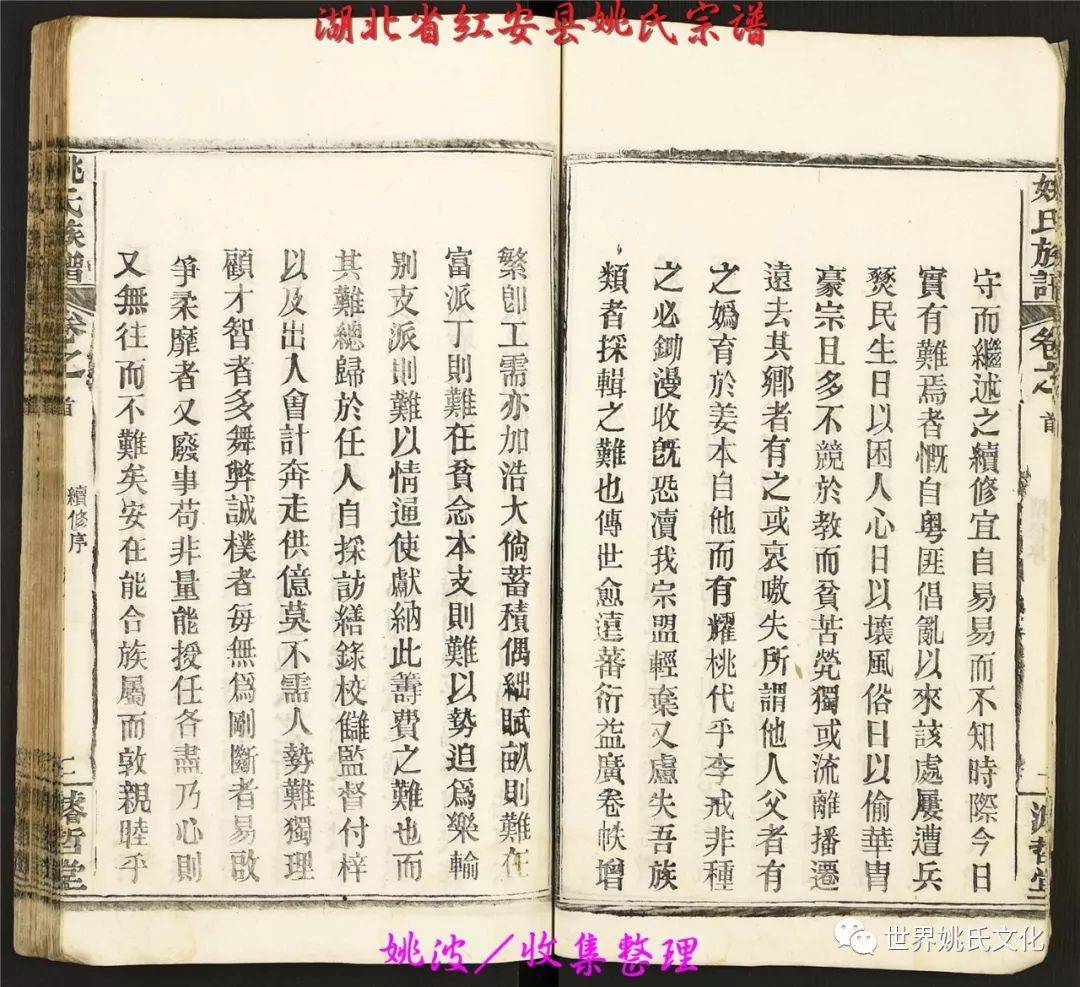 湖北省红安县姚氏宗谱
姚氏族譜
卷之
首
守而繼述之續修宜自易易而不知時際今日
實有難焉者慨自粵匪倡亂以來該處屢遭兵
燹民生日以困人心日以壞風俗日以偷華冑
豪宗且多不競於教而貧苦煢獨或流離播遷
遠去其鄉者有之或哀嗷失所謂他人父者有
之媯育於姜本自他而有耀桃代乎李戒非種
之必鋤漫收旣恐凟我宗盟輕棄又慮失吾族
類者採輯之難也傳世愈遠蕃衍益廣卷帙增
繁卽工需亦加浩大倘蓄積偶絀賦畝則難在
富派丁則難在貧念本支則難以勢迫爲樂輸
别支派則難以情逼使獻納此籌費之難也而
其難總歸於任人自採訪繕錄校讎監督付梓
以及出入會計奔走供億莫不需人勢難獨理
顧才智者多舞弊誠樸者毎無爲剛斷者易啟
爭柔靡者又廢事苟非量能授任各盡乃心則
又無往而不難矣安在能合族屬而敦親睦乎
姚氏族譜
卷之
首
續修序
二
濬哲堂
姚波／收集整理
世界姚氏文化